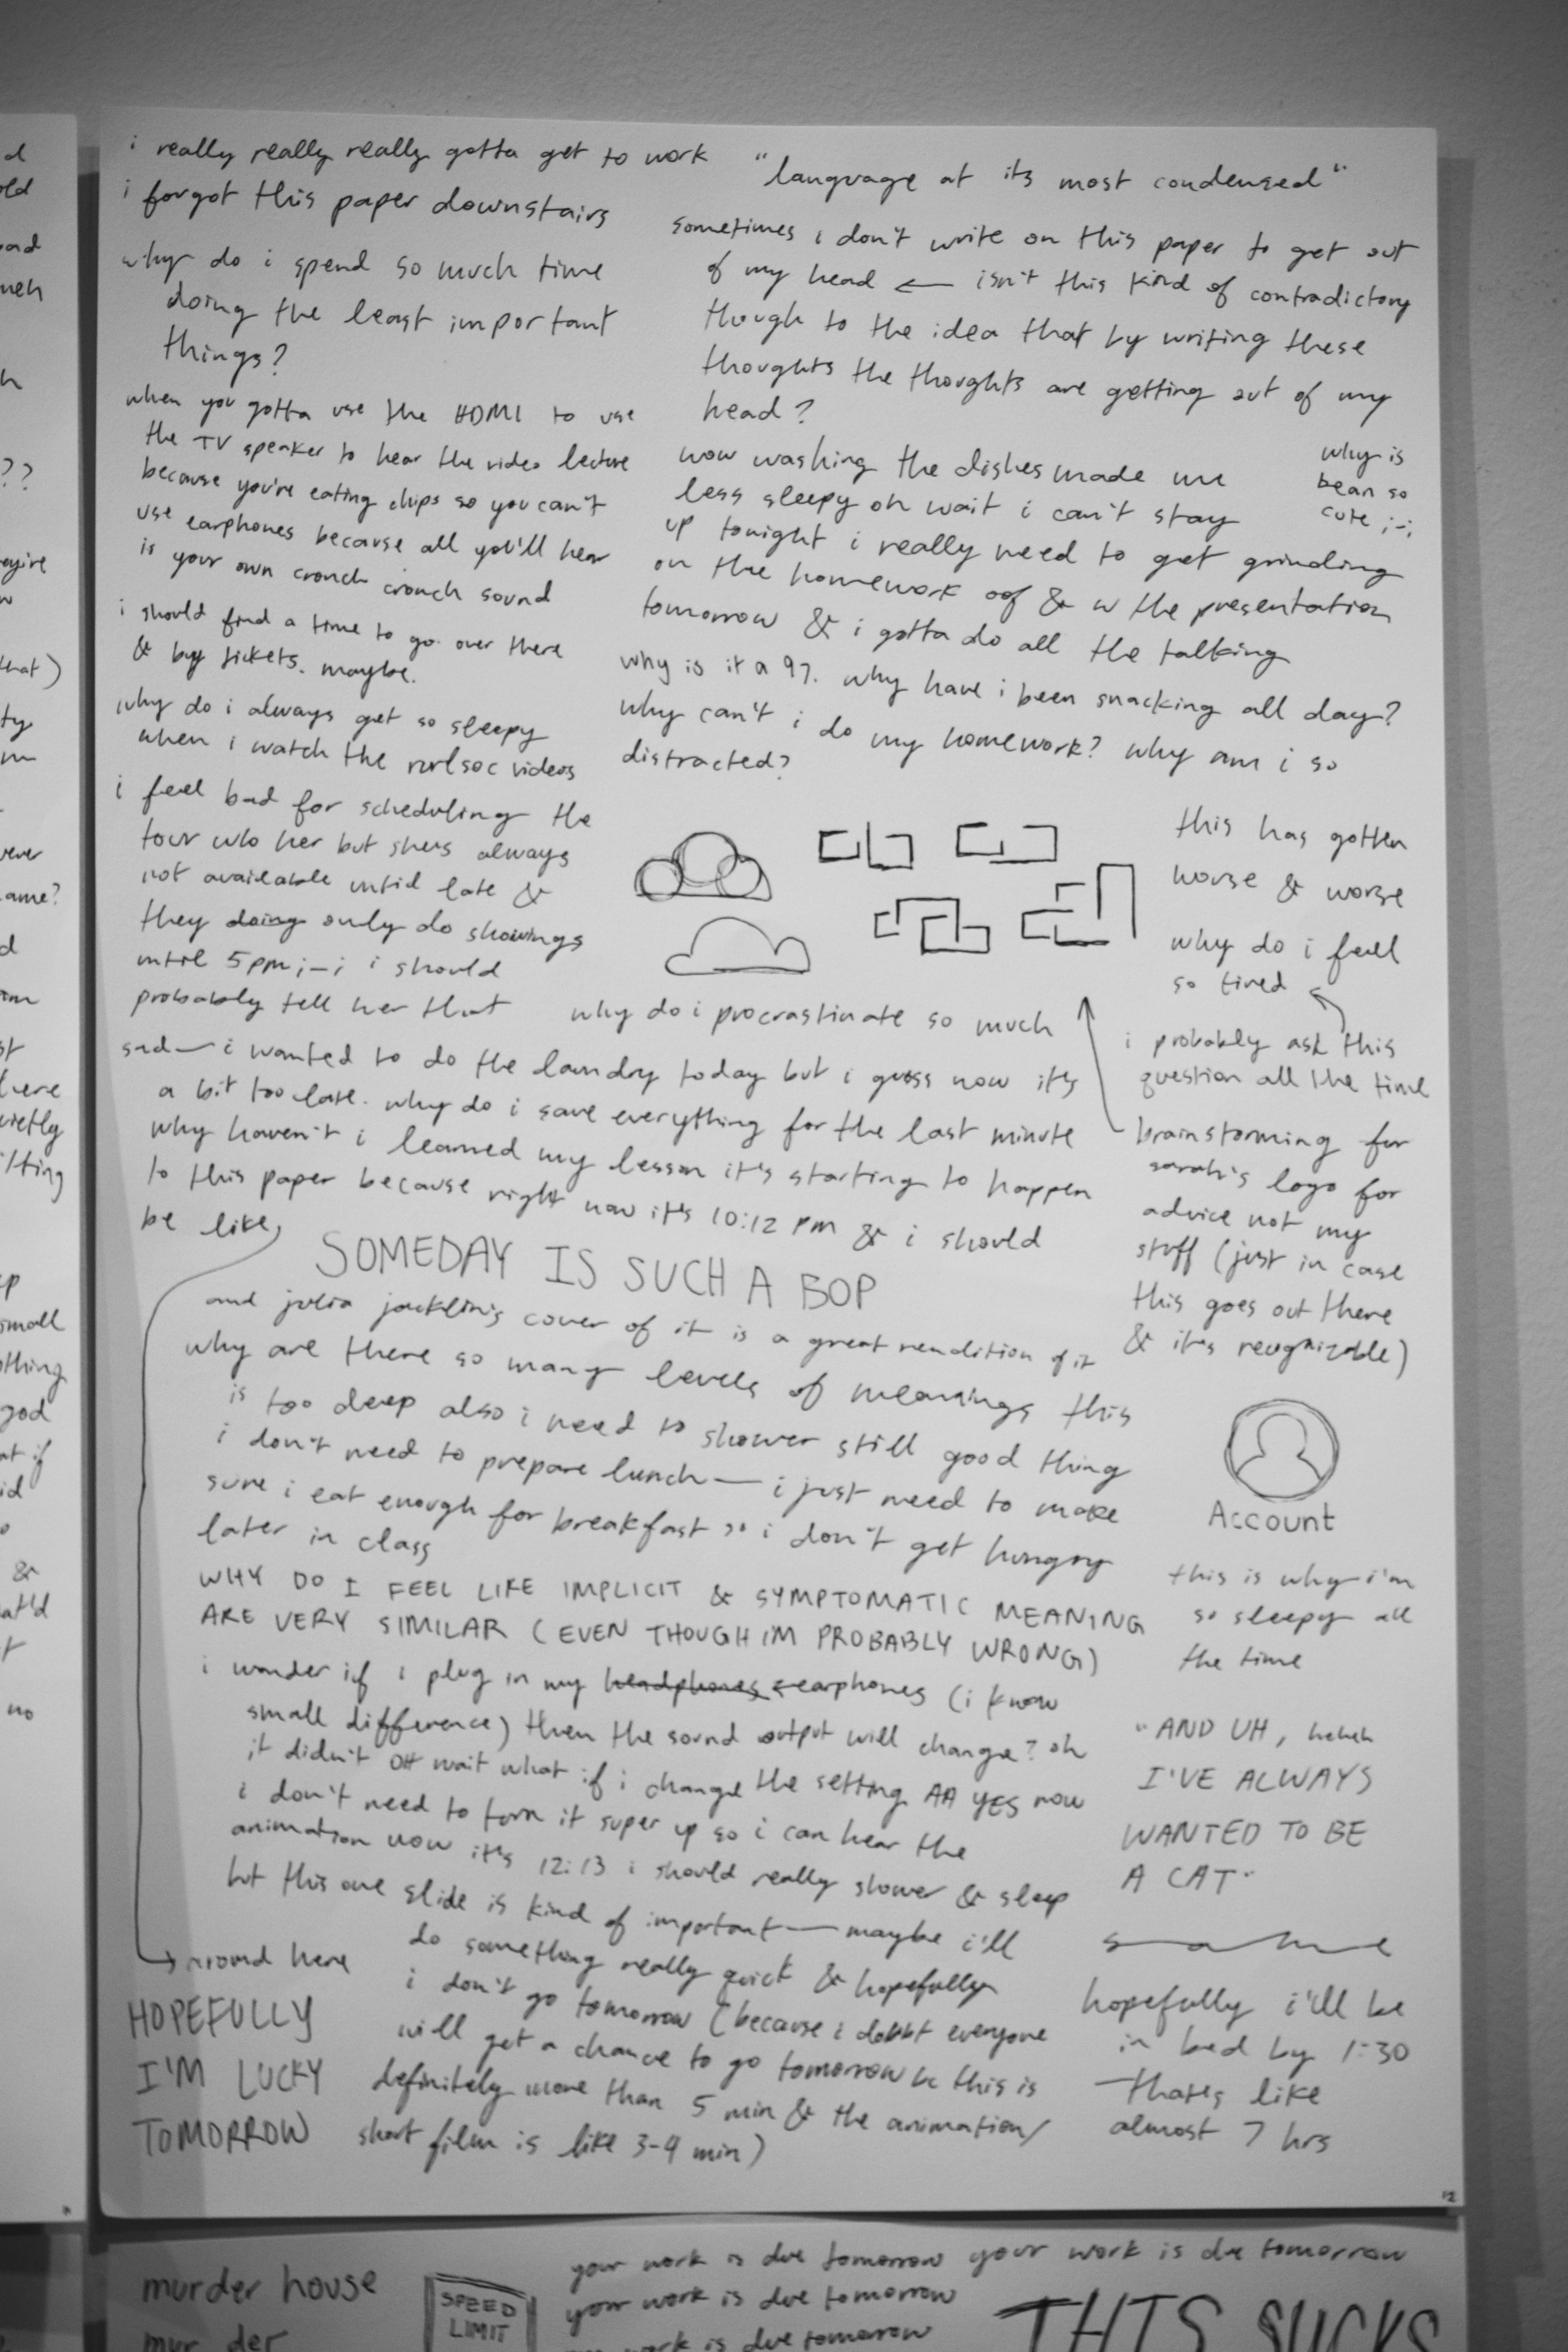 i really really really gotta get to work
i forgot this paper downstairs
why do i spend so much time
doing the least important
things?
when you gotta use the HDMI to use
the TV speaker to hear the video lecture
because you're eating chips so you can't
use earphones because all you'll hear
is your own cronch cronch sound
i should find a time to go over there
& buy tickets. maybe.
why do i always get so sleepy
when i watch the videos
i feel bad for scheduling the
tour w/o her but she's always
not available until late &
they doing only do showings
until 5pm ;-; i should
probably tell her that
"language at its most condensed"
sometimes i don't write on this paper to get out
of my head ← isn't this kind of contradictory
though to the idea that by writing these
thoughts the thoughts are getting out of my
head?
wow washing the dishes made me
less sleepy oh wait i can't stay
up tonight i really need to get grinding
on the homework oof & w the presentation
tomorrow & i gotta do all the talking
why is
bean so
cute ;-;
why is it a 9?. why have i been snacking all day?
why can't i do my homework? why am i so
distracted?
this has gotten
worse & worse
why do i feel
so tired
i probably ask this
question all the time
brainstorming for
sarah's logo for
advice not my
stuff (just in case
this goes out there
& it's recognizable)
why do i procrastinate so much
sad— i wanted to do the laundry today but i guess now it's
a bit too late. why do i save everything for the last minute
why haven't i learned my lesson it's starting to happen
to this paper because right now it's 10:12 PM & i should
be like
SOMEDAY IS SUCH A BOP
and julia jacklin's cover of it is a great rendition of it
why are there so many levels of meanings this
is too deep also i need to shower still good thing
i don't need to prepare lunch— i just need to make
sure i eat enough for breakfast so i don't get hungry
later in class
WHY DO I FEEL LIKE IMPLICIT & SYMPTOMATIC MEANING
ARE VERY SIMILAR (EVEN THOUGH IM PROBABLY WRONG)
i wonder if i plug in my headphones earphones (i know
small difference) then the sound output will change? oh
it didn't OH wait what if i change the setting AA YES now
i don't need to turn it super up so i can hear the
animation now it's 12:13 i should really shower & sleep
but this one slide is kind of important— maybe i'll
do something really quick & hopefully
i don't go tomorrow (because i doubt everyone
will get a chance to go tomorrow bc this is
definitely more than 5 min & the animation/
short film is like 3-4 min)
around here
HOPEFULLY
I'M LUCKY
TOMORROW
Account
this is why i'm
so sleepy all
the time
"AND UH, heheh
I'VE ALWAYS
WANTED TO BE
A CAT"
same
hopefully i'll be
in bed by 1:30
that's like
almost 7 hrs
12
murder house
mur der
SPEED
LIMIT
your work is due tomorrow your work is due tomorrow
your work is due tomorrow
work is due tomorrow
THIS SUCKS